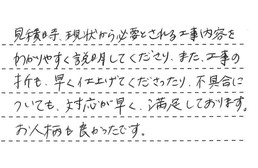 見積時、現状から必要とされる工事内容を
わかりやすく説明してくださり、また、工事の
折も、早く仕上げてくださったり、不具合に
ついても、対応が早く、満足しております。
お人柄も良かったです。